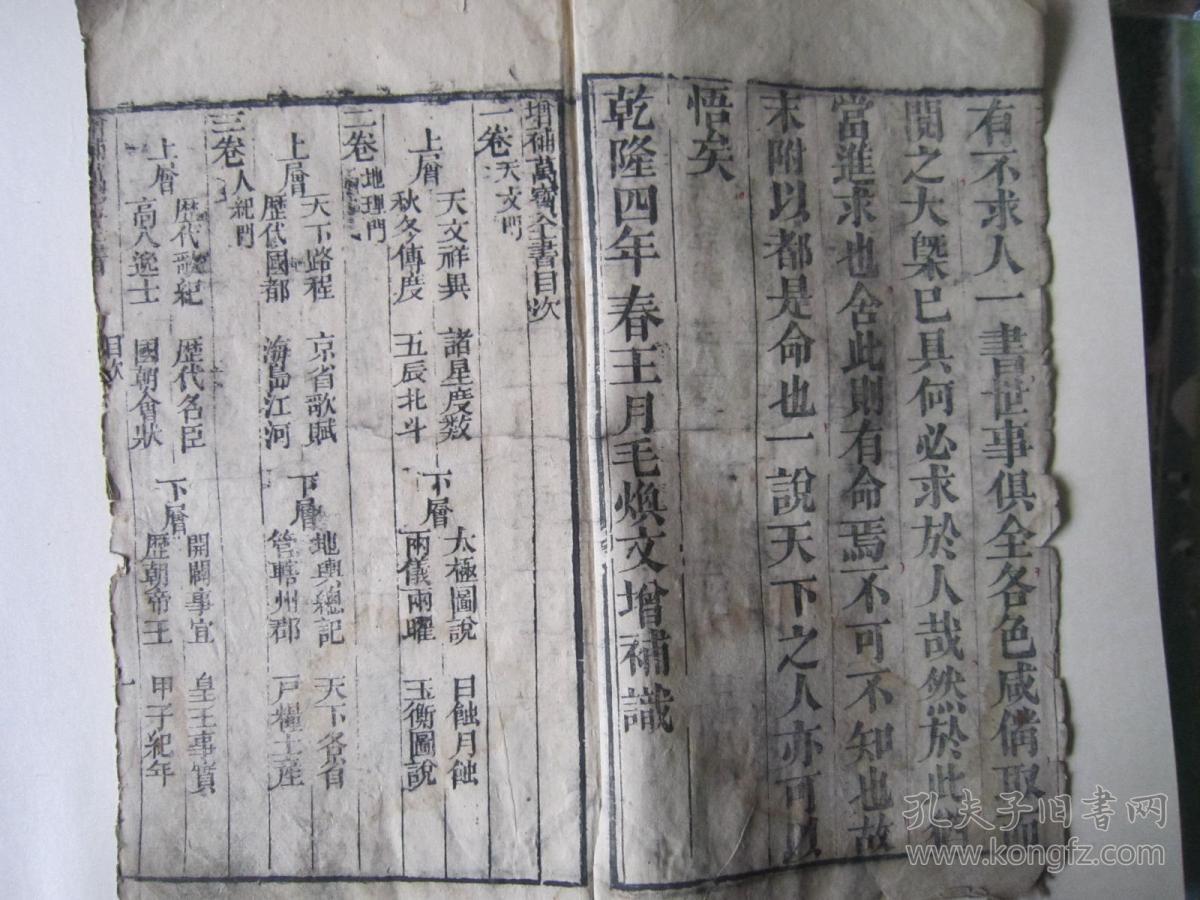 有不求人一書世事俱全各色咸備取而
閱之大槩已具何必求於人哉然於此
當進求也舍此則有命焉不可不知也故
末附以都是命也一說天下之人亦可以
悟矣
乾隆四年春王月毛煥文增補識
增補萬寶全書目次
一卷天文門
上層 天文祥異 諸星度數 下層 太極圖說 日蝕月蝕
秋冬傳度 五辰北斗 兩儀兩曜 玉衡圖說
二卷地理門
上層 天下路程 京省歌賦 下層 地輿總記 天下各省
歷代國都 海島江河 管轄州郡 戶糧土產
三卷人紀門
上層 歷代歌紀 歷代名臣 下層 開闢事宜 皇王事實
高人逸士 國朝會狀 歷朝帝王 甲子紀年
目次
孔夫子旧书网
www.kongfz.com